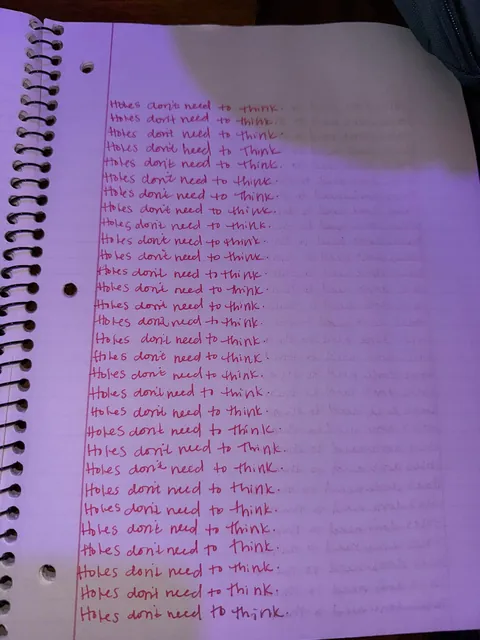 Holes don't need to think.
Holes don't need to think.
Holes don't need to think.
Holes don't need to Think
Holes don't need to think.
Holes don't need to think.
Holes don't need to think.
Holes don't need to think.
Holes don't need to think.
Holes don't need to think.
Holes don't need to think.
Holes don't need to think.
Holes don't need to think.
Holes don't need to think.
Holes don't need to think.
Holes don't need to think.
Holes don't need to think.
Holes don't need to think.
Holes don't need to think.
Holes don't need to think.
Holes don't need to think.
Holes don't need to Think.
Holes don't need to think.
Holes don't need to think.
Holes don't need to think.
Holes don't need to think.
Holes don't need to think.
Holes don't need to think.
Holes don't need to think.
Holes don't need to think.